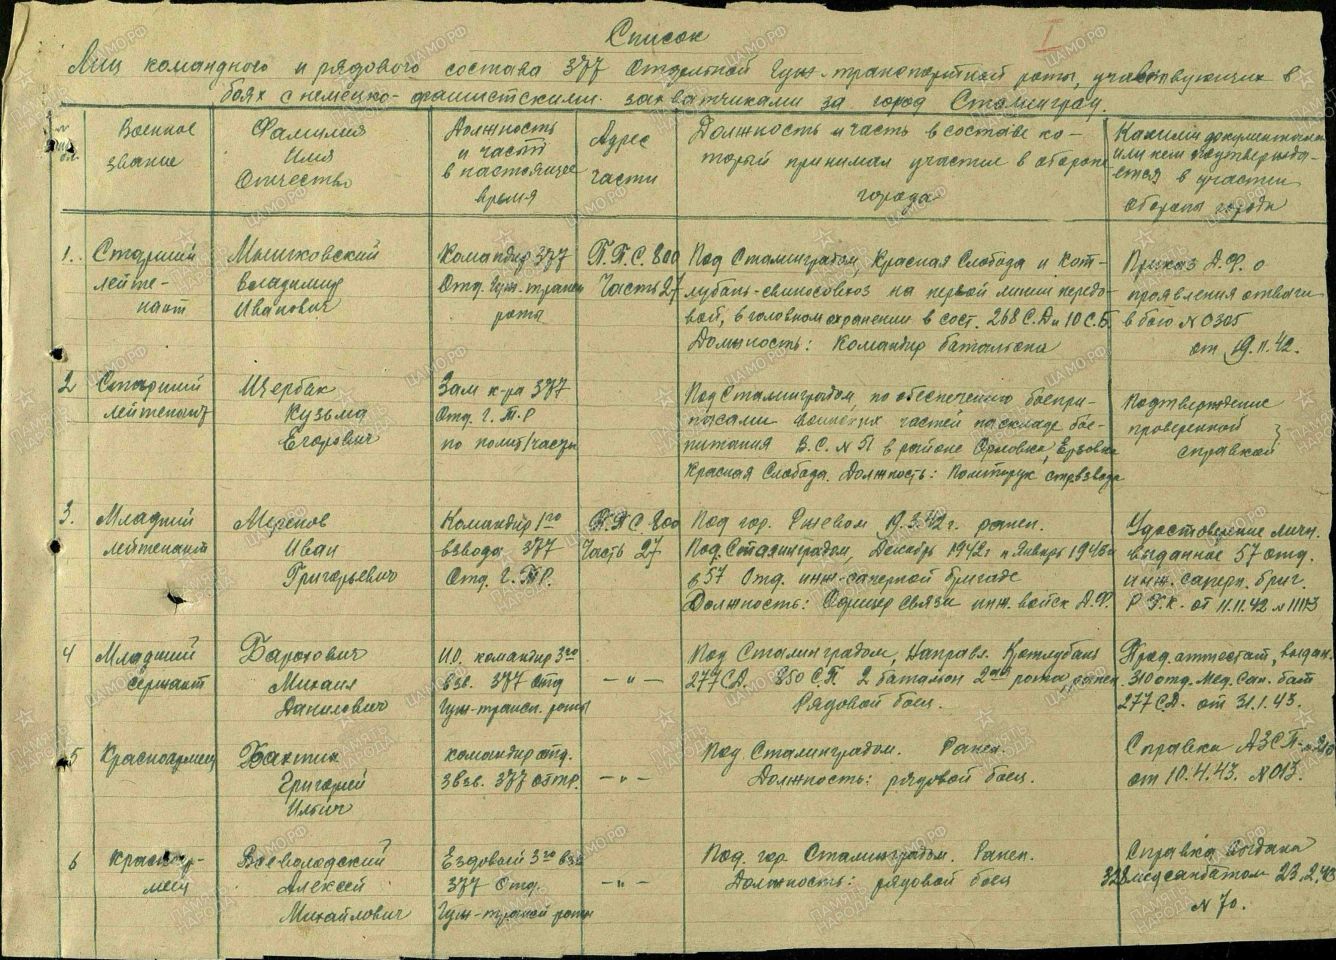 I
Список
Лиц командного и рядового состава 377 Отдельной Гуж-транспортной роты, участвующих в
боях с немецко-фашистскими захватчиками за город Сталинград.
Военное
звание
Фамилия
Имя
Отчество
Должность
и часть
в настоящее
время
Адрес
части
Должность и часть в составе ко-
торый принимал участие в обороне
города
Какими документами
или кем подтвержда-
ется в участии
обороны города
1. Старший
лейте-
нант
Мышковский
Владимир
Иванович
Командир 377
Отд. Гуж. транс
роты
П.П.С. 800
Часть 27
Под Сталинградом, Красная Слобода и Кот-
лубань-свиносовхоз на первой линии передо-
вой, в головном охранении в сост. 268 С.Д и 10 С.Б.
Должность: Командир батальона
Приказ Д.Ф. о
проявления отваги
в бою № 0305
от 19.11.42.
2 Старший
лейтенант
Щербак
Кузьма
Егорович
Зам к-ра 377
Отд. Г. Т.Р
по полит/части
Под Сталинградом, по обеспечению боепри-
пасами воинских частей на складе бое-
питания В.С. № 51 в районе Орловка, Ерзовка
Красная Слобода. Должность: Политрук стр.взвода
Подтверждение
проверенной
справкой
3. Младший
лейтенант
Меренов
Иван
Григорьевич
Командир 1го
взвода 377
Отд. Г. ТР.
П.П.С. 800
Часть 27
Под гор. Ржевом 19.3.42 г. ранен.
Под Сталинградом, Декабрь 1942г и Январь 1943г
в 57 Отд. инж-саперной бригаде
Должность: Офицер связи инж. войск Д.Ф.
Удостоверение личн.
выданное 57 отд.
инж. саперн. бриг.
Р.Г.К. от 11.11.42 № 11113
4 Младший
сержант
Барохович
Михаил
Данилович
И.О. командир 3го
взв. 377 Отд
Гуж-трансп. роты
— „ —
Под Сталинградом, Направл. Котлубань
277 С.Д. 850 С.П. 2 батальон 2ая рота ранен
Рядовой боец.
Прод. аттестат, выдан.
310 отд. Мед. Сан. бат
277 С.Д. от 31.1.43.
5 Красноармеец
Бахтин
Григорий
Ильич
командир отд.
3 взв. 377 ОГТР.
— „ —
Под Сталинградом. Ранен.
Должность: рядовой боец.
Справка АЗСП
от 10.4.43. № 013.
6 Красноар-
меец
Всеволодский
Алексей
Михайлович
Ездовый 3го взв
377 Отд.
Гуж-трансп роты
— „ —
Под гор Сталинградом. Ранен.
Должность: рядовой боец
Справка выдана
328 медсанбатом 23.2.43
№ 70.